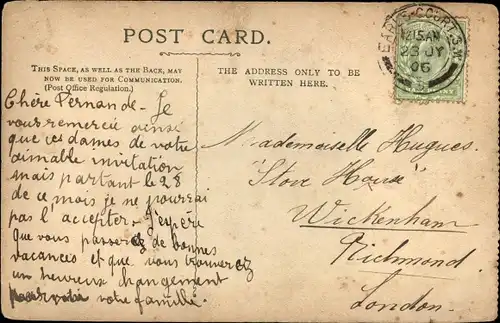 POST CARD.
THIS SPACE, AS WELL AS THE BACK, MAY
NOW BE USED FOR COMMUNICATION.
(Post Office Regulation.)
THE ADDRESS ONLY TO BE
WRITTEN HERE.
EARL'S COURT. S.W.
12 15 AM
23 JY
06
Chère Fernande - Je
vous remercie ainsi
que ces dames de votre
aimable invitation
mais partant le 28
de ce mois je ne pourrai
pas l'accepter - J'espère
que vous passerez de bonnes
vacances et que vous trouverez
un heureux changement
votre famille.
Mademoiselle Hugues.
"Stove House"
Wickenham
Richmond.
London.